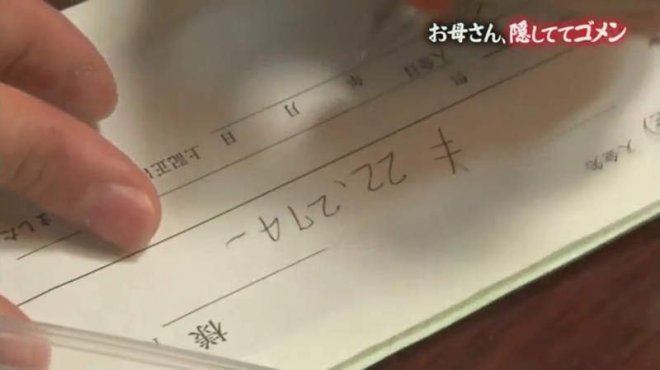 お母さん、隠しててゴメン
様
¥22,274-
年　月　日　上記正に
ました